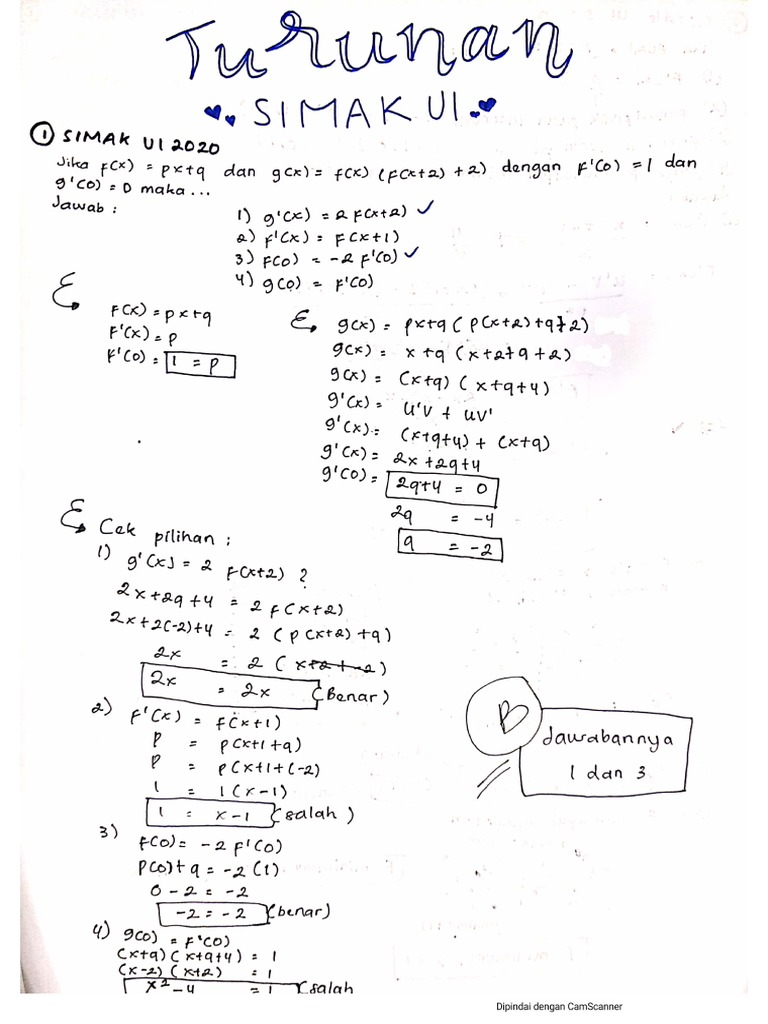 Turunan
SIMAK UI
① SIMAK UI 2020
Jika f(x) = px+q dan g(x) = f(x) (f(x+2) + 2) dengan f'(0) = 1 dan
g'(0) = 0 maka...
Jawab :
1) g'(x) = 2 f(x+2) ✓
2) f'(x) = f(x+1)
3) f(0) = -2 f'(0) ✓
4) g(0) = f'(0)
f(x) = px+q
f'(x) = p
f'(0) = 1 = p
g(x) = px+q ( p(x+2)+q+2)
g(x) = x+q (x+2+q+2)
g(x) = (x+q) (x+q+4)
g'(x) = u'v + uv'
g'(x) = (x+q+4) + (x+q)
g'(x) = 2x+2q+4
g'(0) = 2q+4 = 0
2q = -4
q = -2
Cek pilihan :
1) g'(x) = 2 f(x+2) ?
2x+2q+4 = 2 f(x+2)
2x+2(-2)+4 = 2 (p(x+2)+q)
2x = 2 (x+2+-2)
2x = 2x (Benar)
2) f'(x) = f(x+1)
p = p(x+1+q)
p = p(x+1+(-2)
1 = 1(x-1)
1 = x-1 (salah)
3) f(0) = -2 f'(0)
p(0)+q = -2(1)
0-2 = -2
-2 = -2 (benar)
4) g(0) = f'(0)
(x+q)(x+q+4) = 1
(x-2)(x+2) = 1
x²-4 = 1 (salah
B
Jawabannya
1 dan 3
Dipindai dengan CamScanner